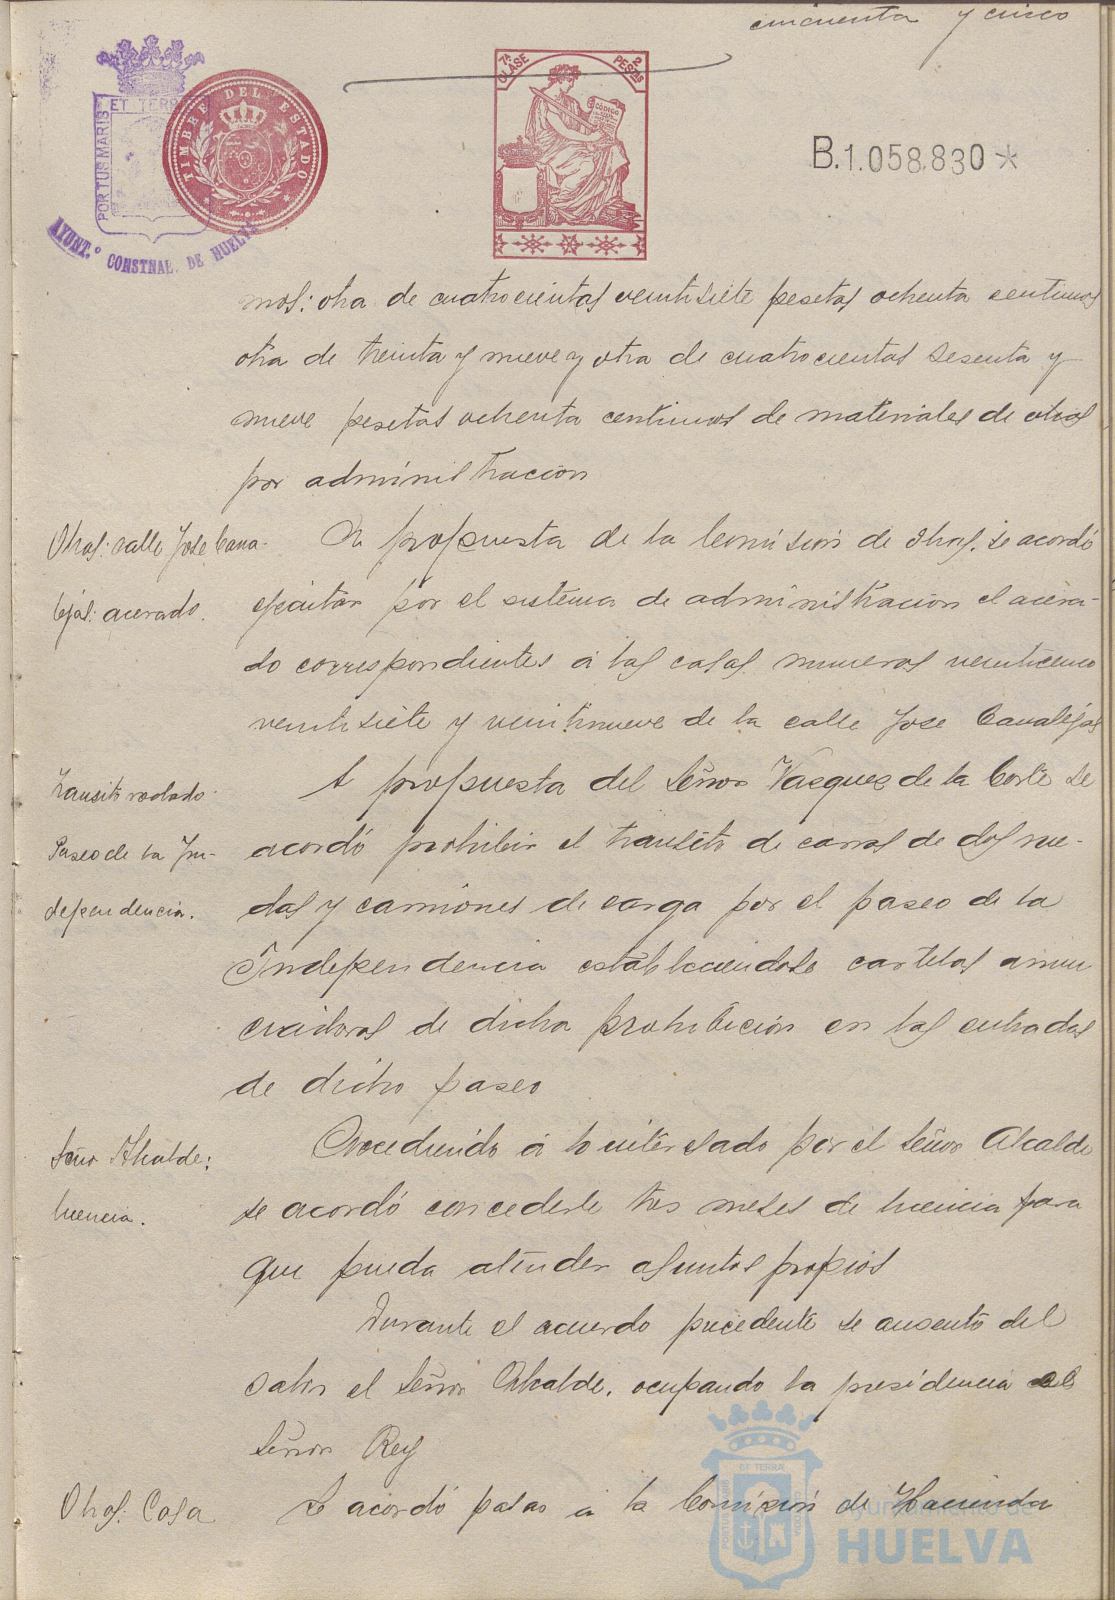 cincuenta y cinco
7ª CLASE 2 PESETAS
CÓDIGO
TIMBRE DEL ESTADO
PORTUS MARIS ET TERR
AYUNT.º CONSTNAL. DE HUELVA
B.1.058.830*
mos: otra de cuatrocientas veintisiete pesetas ochenta centimos
otra de treinta y nueve y otra de cuatrocientas sesenta y
nueve pesetas ochenta centimos de materiales de obras
por administracion
Obras: calle Jose Cana-
lejas: acerado.
A propuesta de la Comision de Obras, se acordó
ejecutar por el sistema de administracion el acera-
do correspondientes á las casas numeros veinticinco
veintisiete y veintinueve de la calle Jose Canalejas
Transito rodado
Paseo de la In-
dependencia.
A propuesta del Señor Vasquez de la Corte se
acordó prohibir el transito de carros de dos rue-
das y camiones de carga por el paseo de la
Independencia estableciendose cartelas anun
ciadoras de dicha prohibición en las entradas
de dicho paseo
Señor Alcalde:
licencia.
Accediendo á lo interesado por el Señor Alcalde
se acordó concederle tres meses de licencia para
que pueda atender asuntos propios
Durante el acuerdo precedente se ausentó del
salon el Señor Alcalde, ocupando la presidencia el
Señor Rey
Obras: Casa
Se acordó pasar á la Comision de Hacienda
PORTUS MARIS ET TERRA
Ayuntamiento de
HUELVA